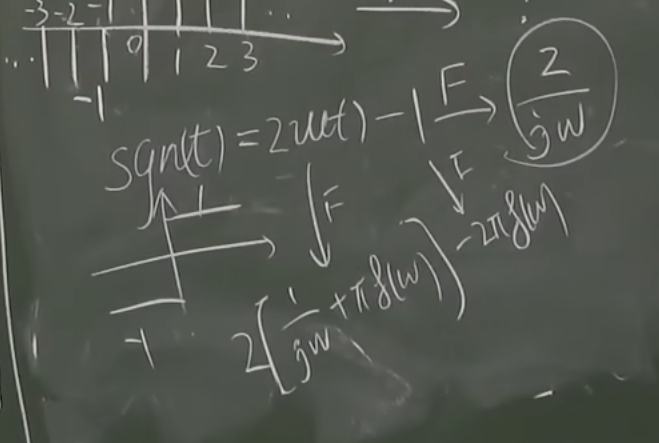 -3 -2 -1
... 0 1 2 3
-1
sgn(t) = 2u(t) - 1 F → 2/jw
1 ↓F ↓F
-1 2[1/jw + πδ(w)] - 2πδ(w)